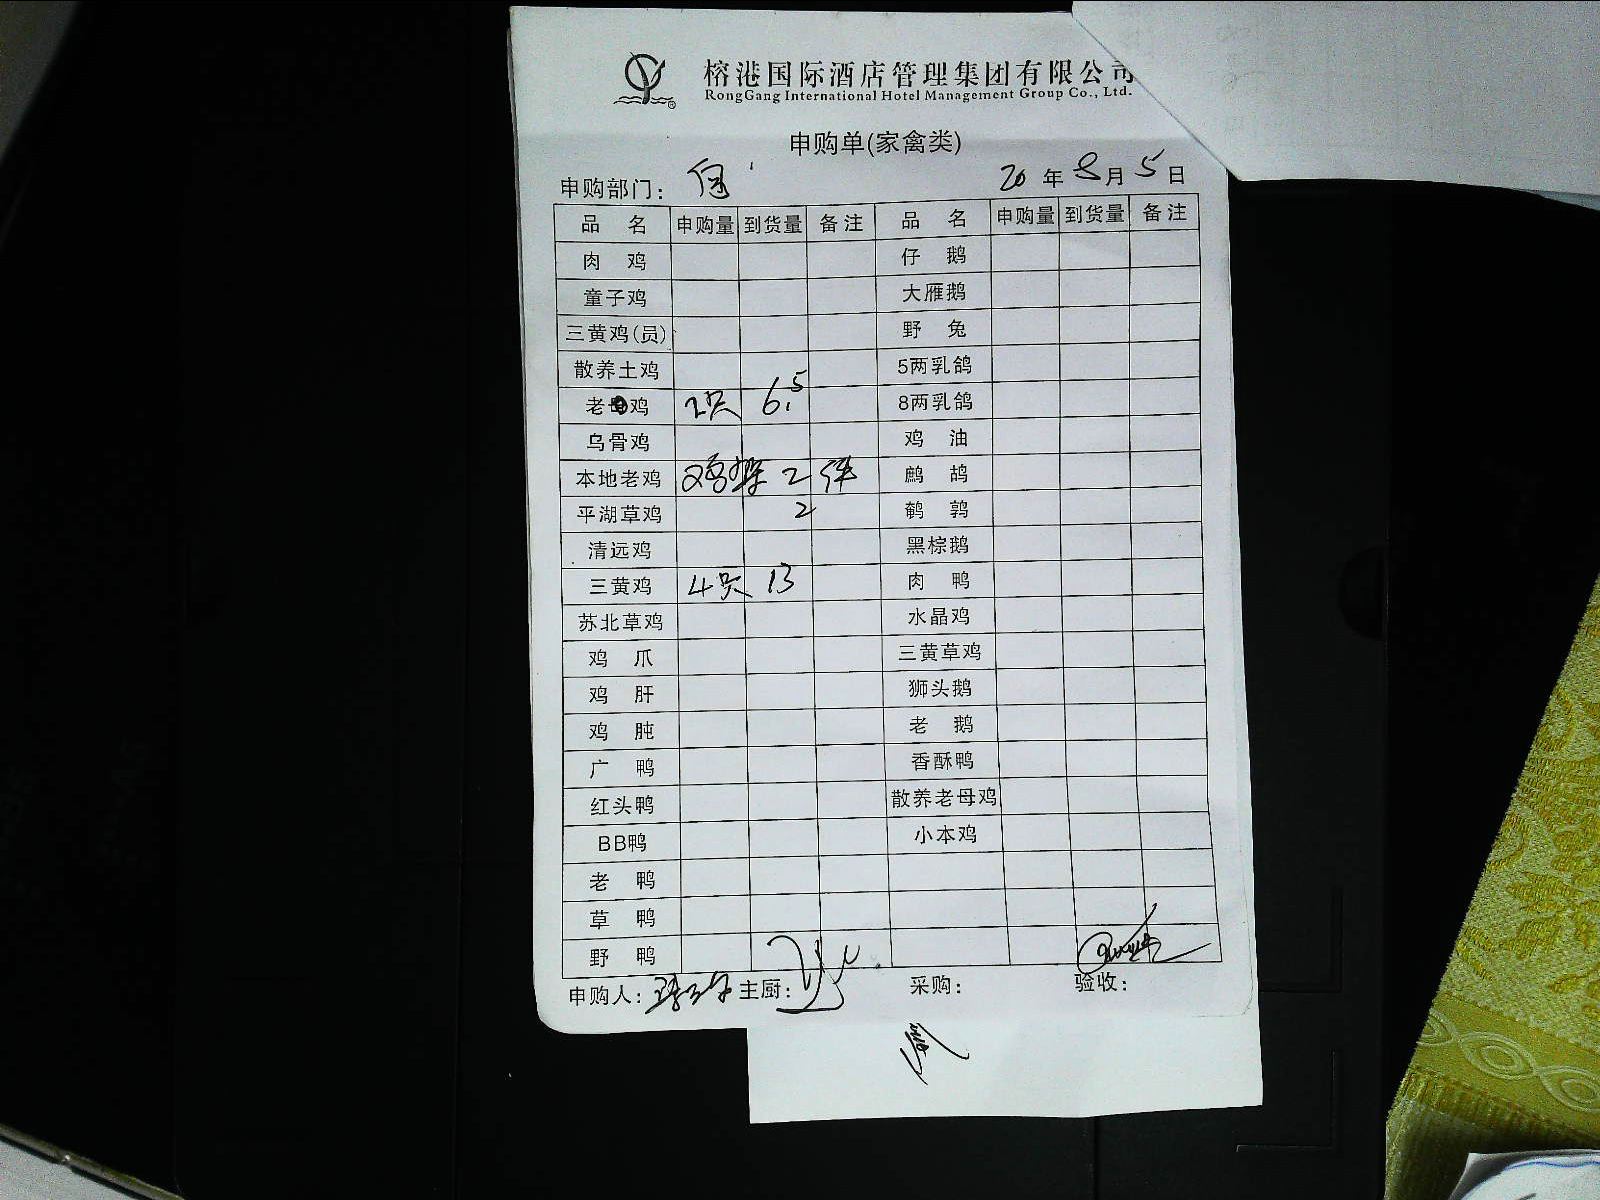 榕港国际酒店管理集团有限公司
RongGang International Hotel Management Group Co., Ltd.
申购单(家禽类)
申购部门:
20 年 8 月 5 日
品 名 申购量 到货量 备注 品 名 申购量 到货量 备注
肉 鸡 仔 鹅
童子鸡 大雁鹅
三黄鸡(员) 野 兔
散养土鸡 5两乳鸽
老母鸡 2只 6.5 8两乳鸽
乌骨鸡 鸡 油
本地老鸡 鸡架 2 件 鹧 鸪
平湖草鸡 2 鹌 鹑
清远鸡 黑棕鹅
三黄鸡 4只 13 肉 鸭
苏北草鸡 水晶鸡
鸡 爪 三黄草鸡
鸡 肝 狮头鹅
鸡 肫 老 鹅
广 鸭 香酥鸭
红头鸭 散养老母鸡
BB鸭 小本鸡
老 鸭
草 鸭
野 鸭
申购人: 主厨: 采购: 验收: